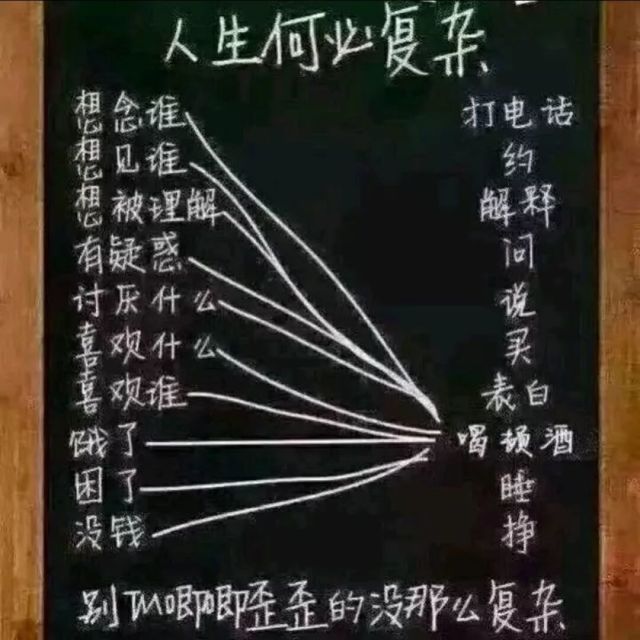 人生何必复杂
想念谁 打电话
想见谁 约
想被理解 解释
有疑惑 问
讨厌什么 说
喜欢什么 买
喜欢谁 表白
饿了 喝顿酒
困了 睡
没钱 挣
别TM唧唧歪歪的没那么复杂